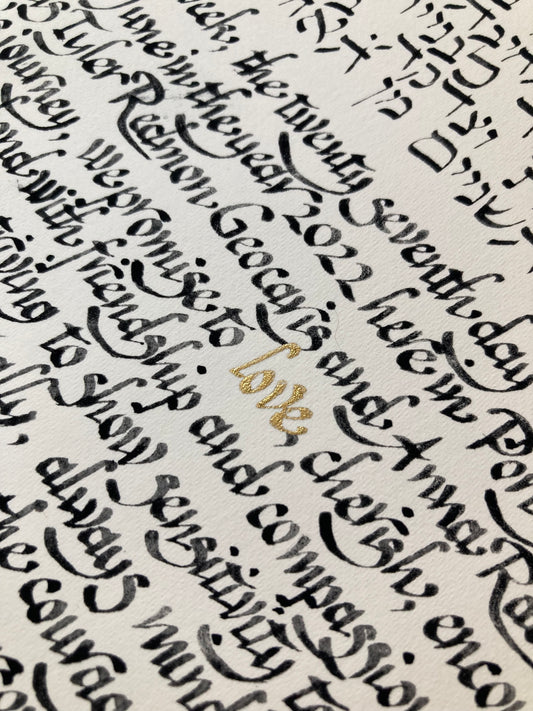 ושניים
eek, the twenty seventh day
June in the year 2022 here in Pon
as Tyler Redmon Geocaris and Anna Ra
journey, we promise to love, cherish, enco
ond with friendship and compassion
iving to show sensitivity to
ally, always mind
the courag